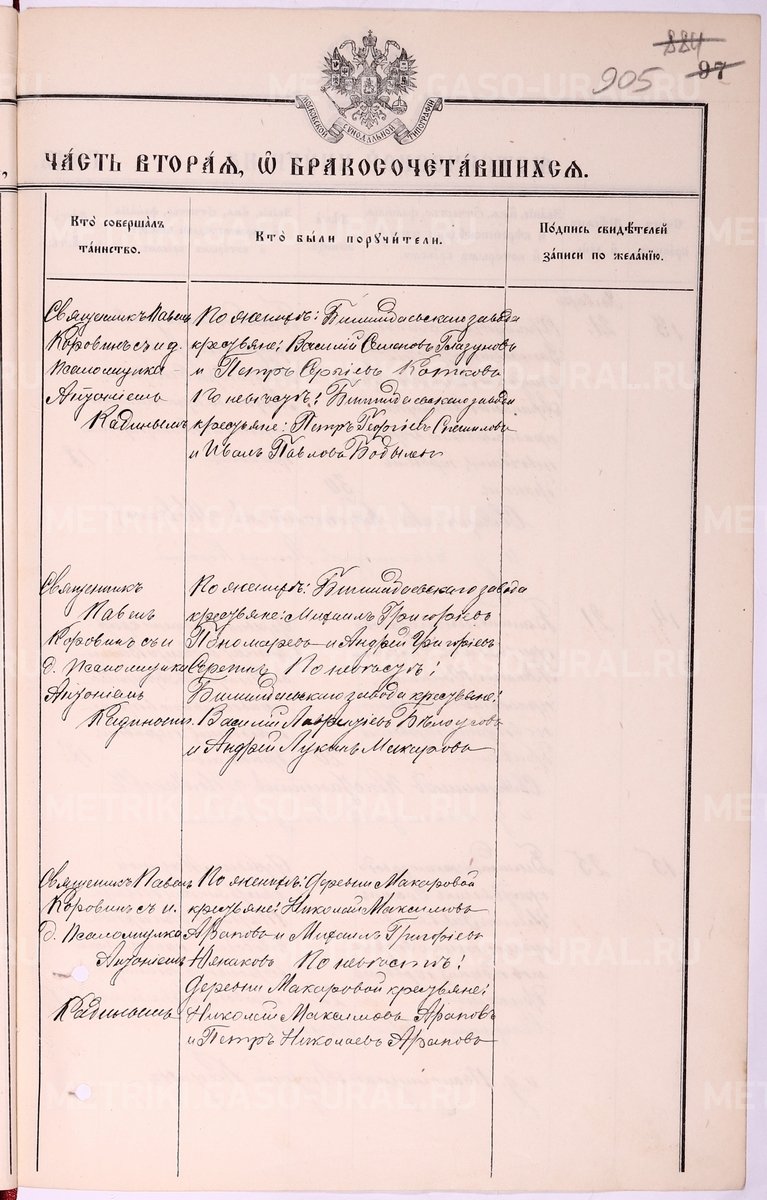 884
905 97
МОСКОВСКОЙ СѴНОДАЛЬНОЙ ТИПОГРАФІИ
ЧА́СТЬ ВТОРА́Ѧ, Ѽ БРАКОСОЧЕТА́ВШИХСѦ.
Кто̀ соверша́лъ та́инство.
Кто̀ бы́ли порꙋчи́тели.
По́дпись свидѣ́телей за́писи по жела́нїю.
Священникъ Павелъ
Коровинъ съ и. д.
псаломщика
Антоніемъ
Кадинымъ
По женихѣ: Билимбаевскаго завода
крестьяне: Василій Семеновъ Глазуновъ
и Петръ Сергіевъ Котковъ
По невѣстѣ: Билимбаевскаго завода
крестьяне: Петръ Георгіевъ
и Иванъ Павловъ
Священникъ
Павелъ
Коровинъ съ и.
д. псаломщика
Антоніемъ
Кадинымъ
По женихѣ: Билимбаевскаго завода
крестьяне: Михаилъ Григоріевъ
Пономаревъ и Андрей Григоріевъ
По невѣстѣ:
Билимбаевскаго завода крестьяне:
Василій Лаврентіевъ Бѣлоусовъ
и Андрей Лукинъ Макаровъ
Священникъ Павелъ
Коровинъ съ и.
д. псаломщика
Антоніемъ
Кадинымъ
По женихѣ: Деревни Макаровой
крестьяне: Николай Максимовъ
Араповъ и Михаилъ Григоріевъ
По невѣстѣ:
Деревни Макаровой крестьяне:
Николай Максимовъ Араповъ
и Петръ Николаевъ Араповъ
METRIKI.GASO-URAL.RU